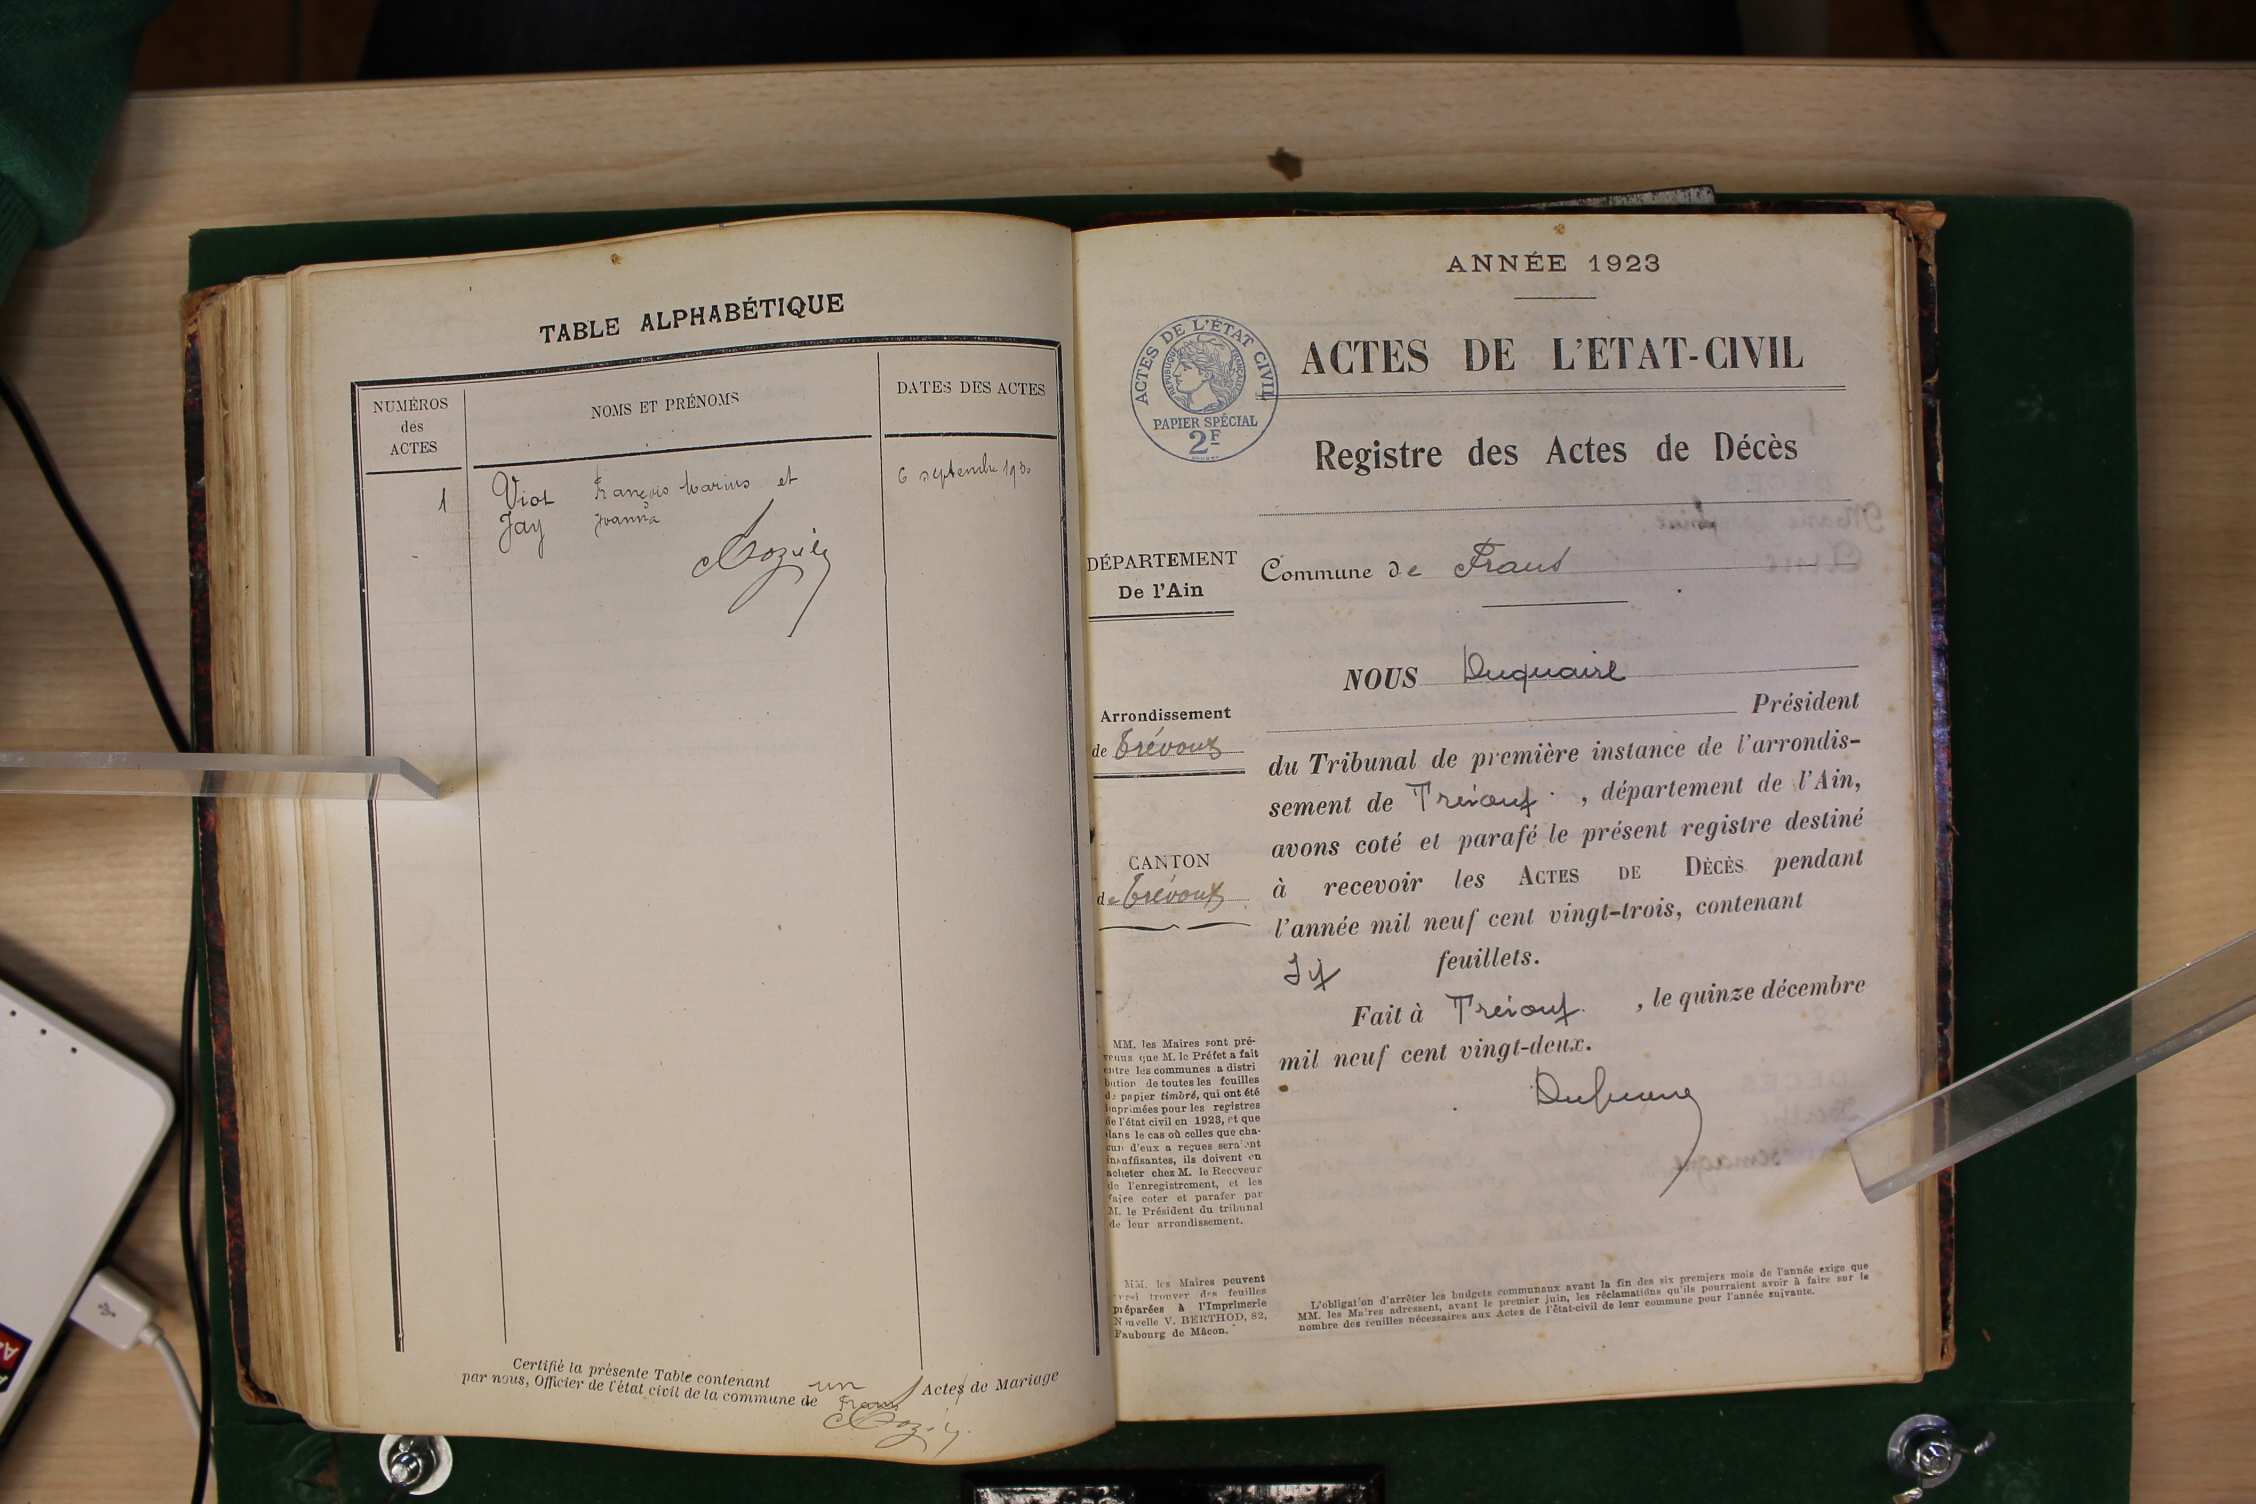 TABLE ALPHABÉTIQUE
NUMÉROS
des
ACTES
NOMS ET PRÉNOMS
DATES DES ACTES
1
Viot François Marius et
6 septembre 1930
Jay Joanna
Certifié la présente Table contenant un Actes de Mariage
par nous, Officier de l'état civil de la commune de Frans
ANNÉE 1923
ACTES DE L'ÉTAT CIVIL
RÉPUBLIQUE FRANÇAISE
PAPIER SPÉCIAL
2F
ACTES DE L'ETAT-CIVIL
Registre des Actes de Décès
DÉPARTEMENT
De l'Ain
Commune de Frans
Arrondissement
de Trévoux
CANTON
de Trévoux
NOUS Duquaire
Président
du Tribunal de première instance de l'arrondis-
sement de Trévoux, département de l'Ain,
avons coté et parafé le présent registre destiné
à recevoir les ACTES DE DÉCÈS pendant
l'année mil neuf cent vingt-trois, contenant
Six feuillets.
Fait à Trévoux, le quinze décembre
mil neuf cent vingt-deux.
MM. les Maires sont pré-
venus que M. le Préfet a fait
entre les communes a distri
bution de toutes les feuilles
de papier timbré, qui ont été
imprimées pour les registres
de l'état civil en 1923, et que
dans le cas où celles que cha-
cun d'eux a reçues seraient
insuffisantes, ils doivent en
acheter chez M. le Receveur
de l'enregistrement, et les
faire coter et parafer par
M. le Président du tribunal
de leur arrondissement.
MM. les Maires peuvent
aussi trouver des feuilles
préparées à l'Imprimerie
Nouvelle V. BERTHOD, 82,
Faubourg de Mâcon.
L'obligation d'arrêter les budgets communaux avant la fin des six premiers mois de l'année exige que
MM. les Maires adressent, avant le premier juin, les réclamations qu'ils pourraient avoir à faire sur le
nombre des feuilles nécessaires aux Actes de l'état-civil de leur commune pour l'année suivante.